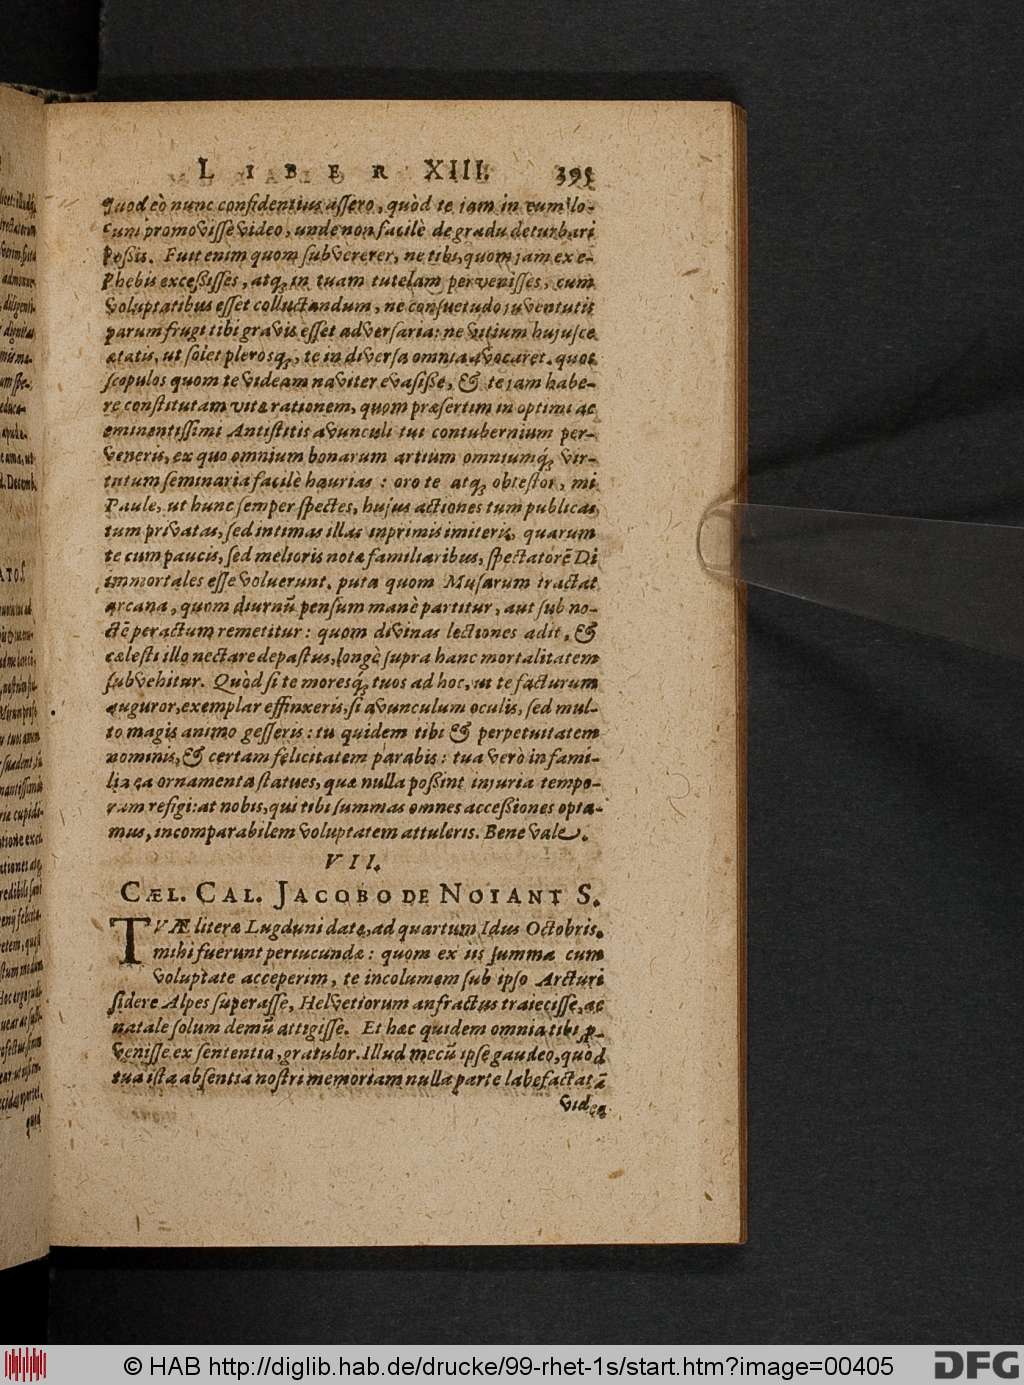 LIBER XIII. 395
quod eò nunc confidentius assero, quòd te jam in eum lo-
cum promovisse video, unde non facilè de gradu deturbari
possis. Fuit enim quom subvererer, ne tibi, quom jam ex e-
phebis excessisses, atq; in tuam tutelam pervenisses, cum
voluptatibus esset colluctandum, ne consuetudo juventutis
parum frugi tibi gravis esset adversaria: ne vitium hujusce
ætatis, ut solet plerosq;, te in diversa omnia avocaret. quos
scopulos quom te videam naviter evasisse, & te jam habe-
re constitutam vitæ rationem, quom præsertim in optimi ac
eminentissimi Antistitis avunculi tui contubernium per-
veneris, ex quo omnium bonarum artium omniumq́; vir-
tutum seminaria facilè haurias: oro te atq; obtestor, mi
Paule, ut hunc semper spectes, hujus actiones tum publicas,
tum privatas, sed intimas illas inprimis imiteris, quarum
te cum paucis, sed melioris notæ familiaribus, spectatorẽ Di
immortales esse voluerunt. puta quom Musarum tractat
arcana, quom diurnũ pensum manè partitur, aut sub no-
ctẽ peractum remetitur: quom divinas lectiones adit, &
cælesti illo nectare depastus, longè supra hanc mortalitatem
subvehitur. Quòd si te moresq́; tuos ad hoc, ut te facturum
auguror, exemplar effinxeris, si avunculum oculis, sed mul-
to magis animo gesseris: tu quidem tibi & perpetuitatem
nominis, & certam felicitatem parabis: tua verò in fami-
lia ea ornamenta statues, quæ nulla possint injuria tempo-
rum refigi: at nobis, qui tibi summas omnes accessiones opta-
mus, incomparabilem voluptatem attuleris. Bene vale.
VII.
CÆL. CAL. JACOBO DE NOIANT S.
TVÆ literæ Lugduni datæ, ad quartum Idus Octobris,
mihi fuerunt perjucundæ: quom ex iis summa cum
voluptate acceperim, te incolumem sub ipso Arcturi
sidere Alpes superasse, Helvetiorum anfractus traiecisse, ac
natale solum demũ attigisse. Et hæc quidem omnia tibi p-
venisse ex sententia, gratulor. Illud mecũ ipse gaudeo, quòd
tua ista absentia nostri memoriam nulla parte labefactatã
videa
© HAB http://diglib.hab.de/drucke/99-rhet-1s/start.htm?image=00405
DFG